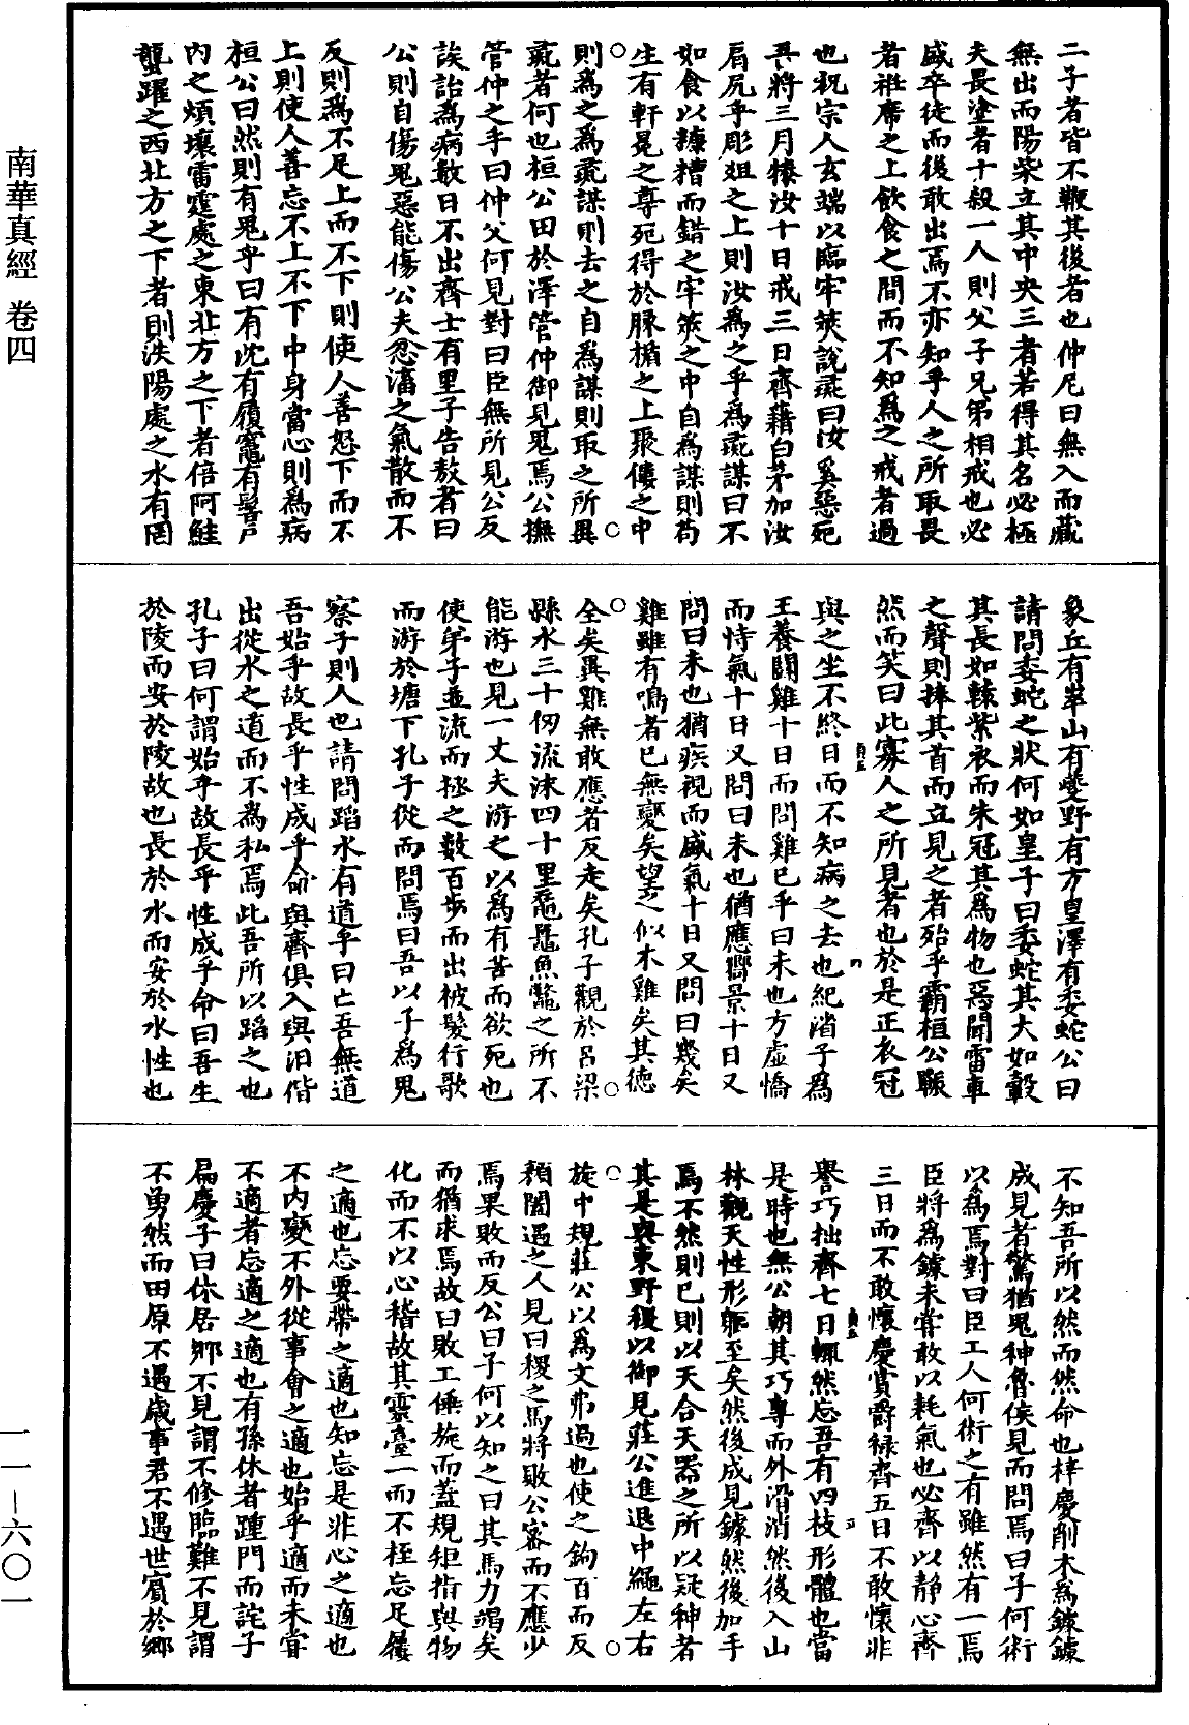 南華真經 卷四
二子者皆不鞭其後者也仲尼曰無入而藏
無出而陽柴立其中央三者若得其名必極
夫畏塗者十殺一人則父子兄弟相戒也必
盛卒徒而後敢出焉不亦知乎人之所取畏
者袵席之上飲食之間而不知為之戒者過
也祝宗人玄端以臨牢筴說彘曰汝奚惡死
吾將三月㹖汝十日戒三日齊藉白茅加汝
肩尻乎彫俎之上則汝為之乎為彘謀曰不
如食以糠糟而錯之牢筴之中自為謀則苟
生有軒冕之尊死得於腞楯之上聚僂之中
則為之為彘謀則去之自為謀則取之所異
彘者何也桓公田於澤管仲御見鬼焉公撫
管仲之手曰仲父何見對曰臣無所見公反
誒詒為病數日不出齊士有皇子告敖者曰
公則自傷鬼惡能傷公夫忿滀之氣散而不
反則為不足上而不下則使人善怒下而不
上則使人善忘不上不下中身當心則為病
桓公曰然則有鬼乎曰有沈有履竈有髻戶
內之煩壤雷霆處之東北方之下者倍阿鮭
蠪躍之西北方之下者則泆陽處之水有罔
象丘有峷山有夔野有方皇澤有委蛇公曰
請問委蛇之狀何如皇子曰委蛇其大如轂
其長如轅紫衣而朱冠其為物也惡聞雷車
之聲則捧其首而立見之者殆乎霸桓公辴
然而笑曰此寡人之所見者也於是正衣冠
與之坐不終日而不知病之去也紀渻子為
王養鬭雞十日而問雞已乎曰未也方虛憍
而恃氣十日又問曰未也猶應嚮景十日又
問曰未也猶疾視而盛氣十日又問曰幾矣
雞雖有鳴者已無變矣望之似木雞矣其德
全矣異雞無敢應者反走矣孔子觀於呂梁
縣水三十仞流沫四十里黿鼉魚鼈之所不
能游也見一丈夫游之以為有苦而欲死也
使弟子並流而拯之數百步而出被髮行歌
而游於塘下孔子從而問焉曰吾以子為鬼
察子則人也請問蹈水有道乎曰亡吾無道
吾始乎故長乎性成乎命與齊俱入與汨偕
出從水之道而不為私焉此吾所以蹈之也
孔子曰何謂始乎故長乎性成乎命曰吾生
於陵而安於陵故也長於水而安於水性也
不知吾所以然而然命也梓慶削木為鐻鐻
成見者驚猶鬼神魯侯見而問焉曰子何術
以為焉對曰臣工人何術之有雖然有一焉
臣將為鐻未嘗敢以耗氣也必齊以靜心齊
三日而不敢懷慶賞爵祿齊五日不敢懷非
譽巧拙齊七日輒然忘吾有四枝形體也當
是時也無公朝其巧專而外滑消然後入山
林觀天性形軀至矣然後成見鐻然後加手
焉不然則已則以天合天器之所以疑神者
其是與東野稷以御見莊公進退中繩左右
旋中規莊公以為文弗過也使之鉤百而反
顏闔遇之入見曰稷之馬將敗公密而不應少
焉果敗而反公曰子何以知之曰其馬力竭矣
而猶求焉故曰敗工倕旋而蓋規矩指與物
化而不以心稽故其靈臺一而不桎忘足屨
之適也忘要帶之適也知忘是非心之適也
不內變不外從事會之適也始乎適而未嘗
不適者忘適之適也有孫休者踵門而詫子
扁慶子曰休居鄉不見謂不修臨難不見謂
不勇然而田原不遇歲事君不遇世賓於鄉
一一－六〇一